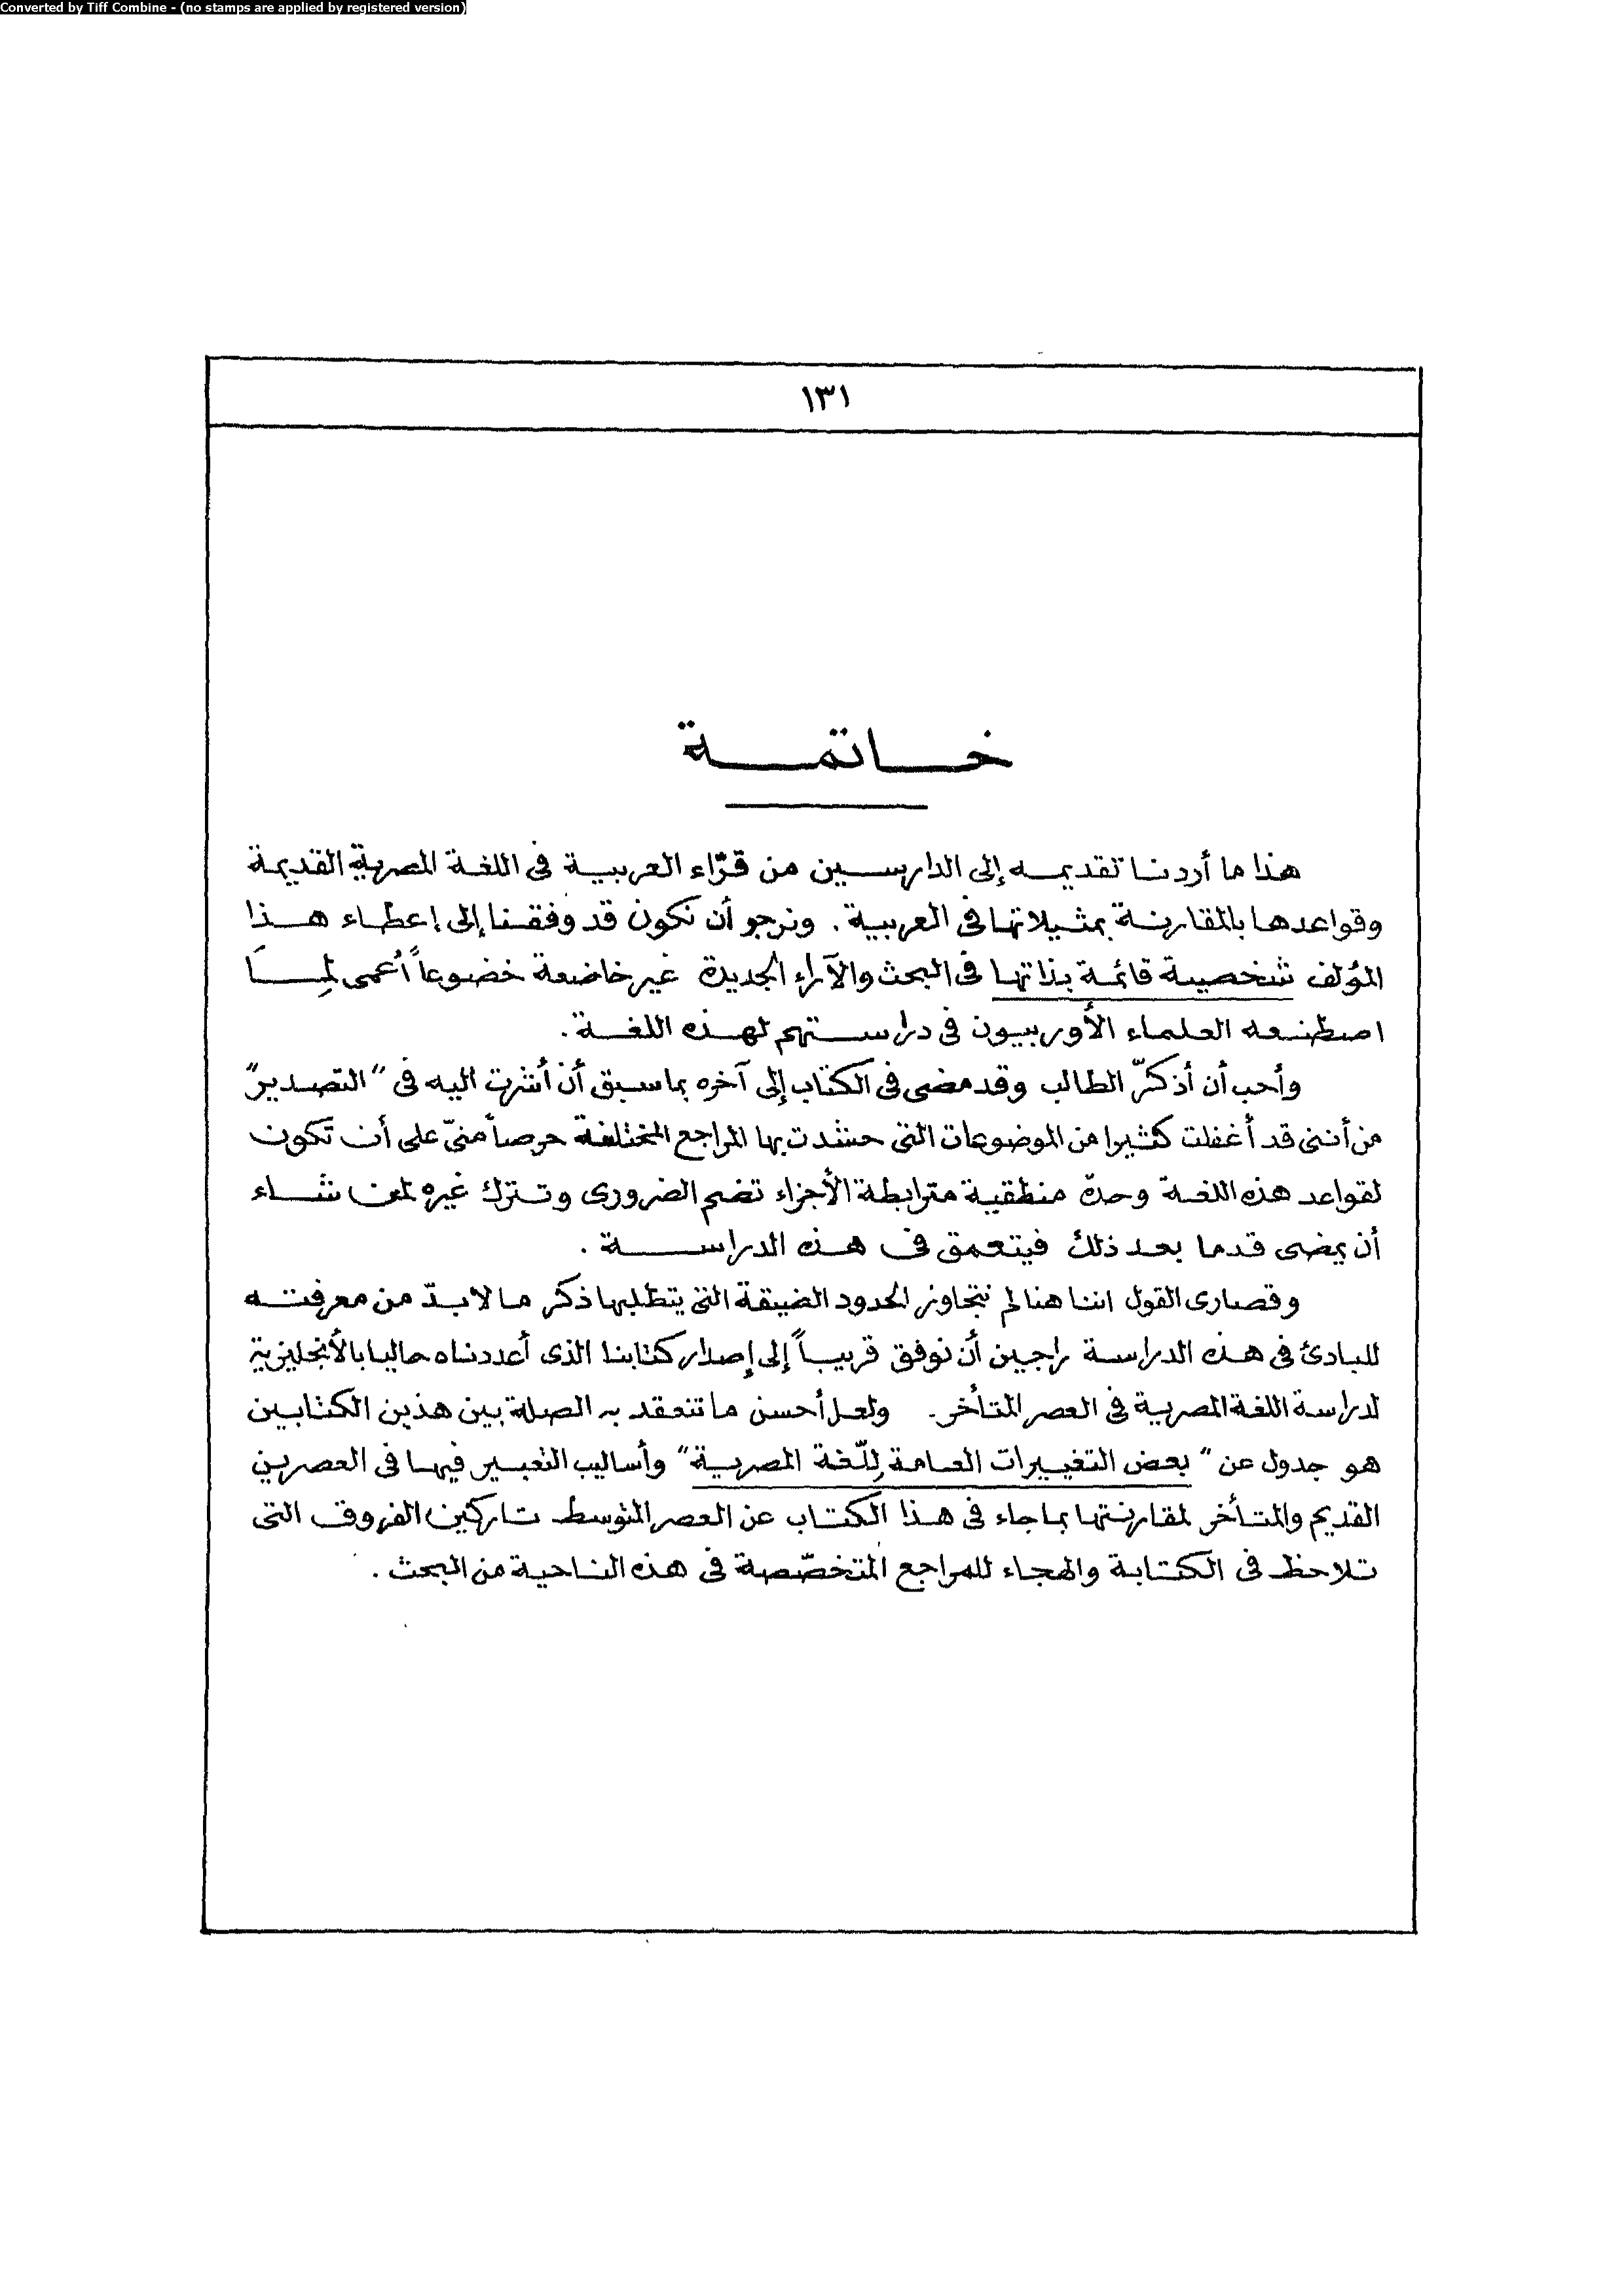 Converted by Tiff Combine - (no stamps are applied by registered version)
١٣١
خاتمة
هذا ما أردنا تقديمه إلى الدارسين من قرّاء العربية فى اللغة المصرية القديمة
وقواعدها بالمقارنة بمثيلاتها فى العربية . ونرجو أن نكون قد وفقنا إلى إعطاء هذا
المؤلف شخصية قائمة بذاتها فى البحث والآراء الجديدة غير خاضعة خضوعاً أعمى لِمَا
اصطنعه العلماء الأوربيون فى دراستهم لهذه اللغة .
وأحب أن أذكرّ الطالب وقد مضى فى الكتاب إلى آخره بما سبق أن أشرت اليه فى "التصدير"
من أننى قد أغفلت كثيرا من الموضوعات التى حشدت بها المراجع المختلفة حرصاً منىّ على أن تكون
لقواعد هذه اللغة وحدة منطقية مترابطة الأجزاء تضم الضرورى وتترك غيره لمن شاء
أن يمضى قدما بعد ذلك فيتعمق فى هذه الدراسة .
وقصارى القول اننا هنا لم نتجاوز الحدود الضيقة التى يتطلبها ذكر ما لابدّ من معرفته
للبادئ فى هذه الدراسة راجين أن نوفق قريباً إلى إصدار كتابنا الذى أعددناه حاليا بالأنجليزية
لدراسة اللغة المصرية فى العصر المتأخر . ولعل أحسن ما تنعقد به الصلة بين هذين الكتابين
هو جدول عن " بعض التغييرات العامة لِلّغة المصرية " وأساليب التعبير فيها فى العصرين
القديم والمتأخر لمقارنتها بما جاء فى هذا الكتاب عن العصر المتوسط تاركين الفروق التى
تلاحظ فى الكتابة والهجاء للمراجع المتخصّصة فى هذه الناحية من البحث .